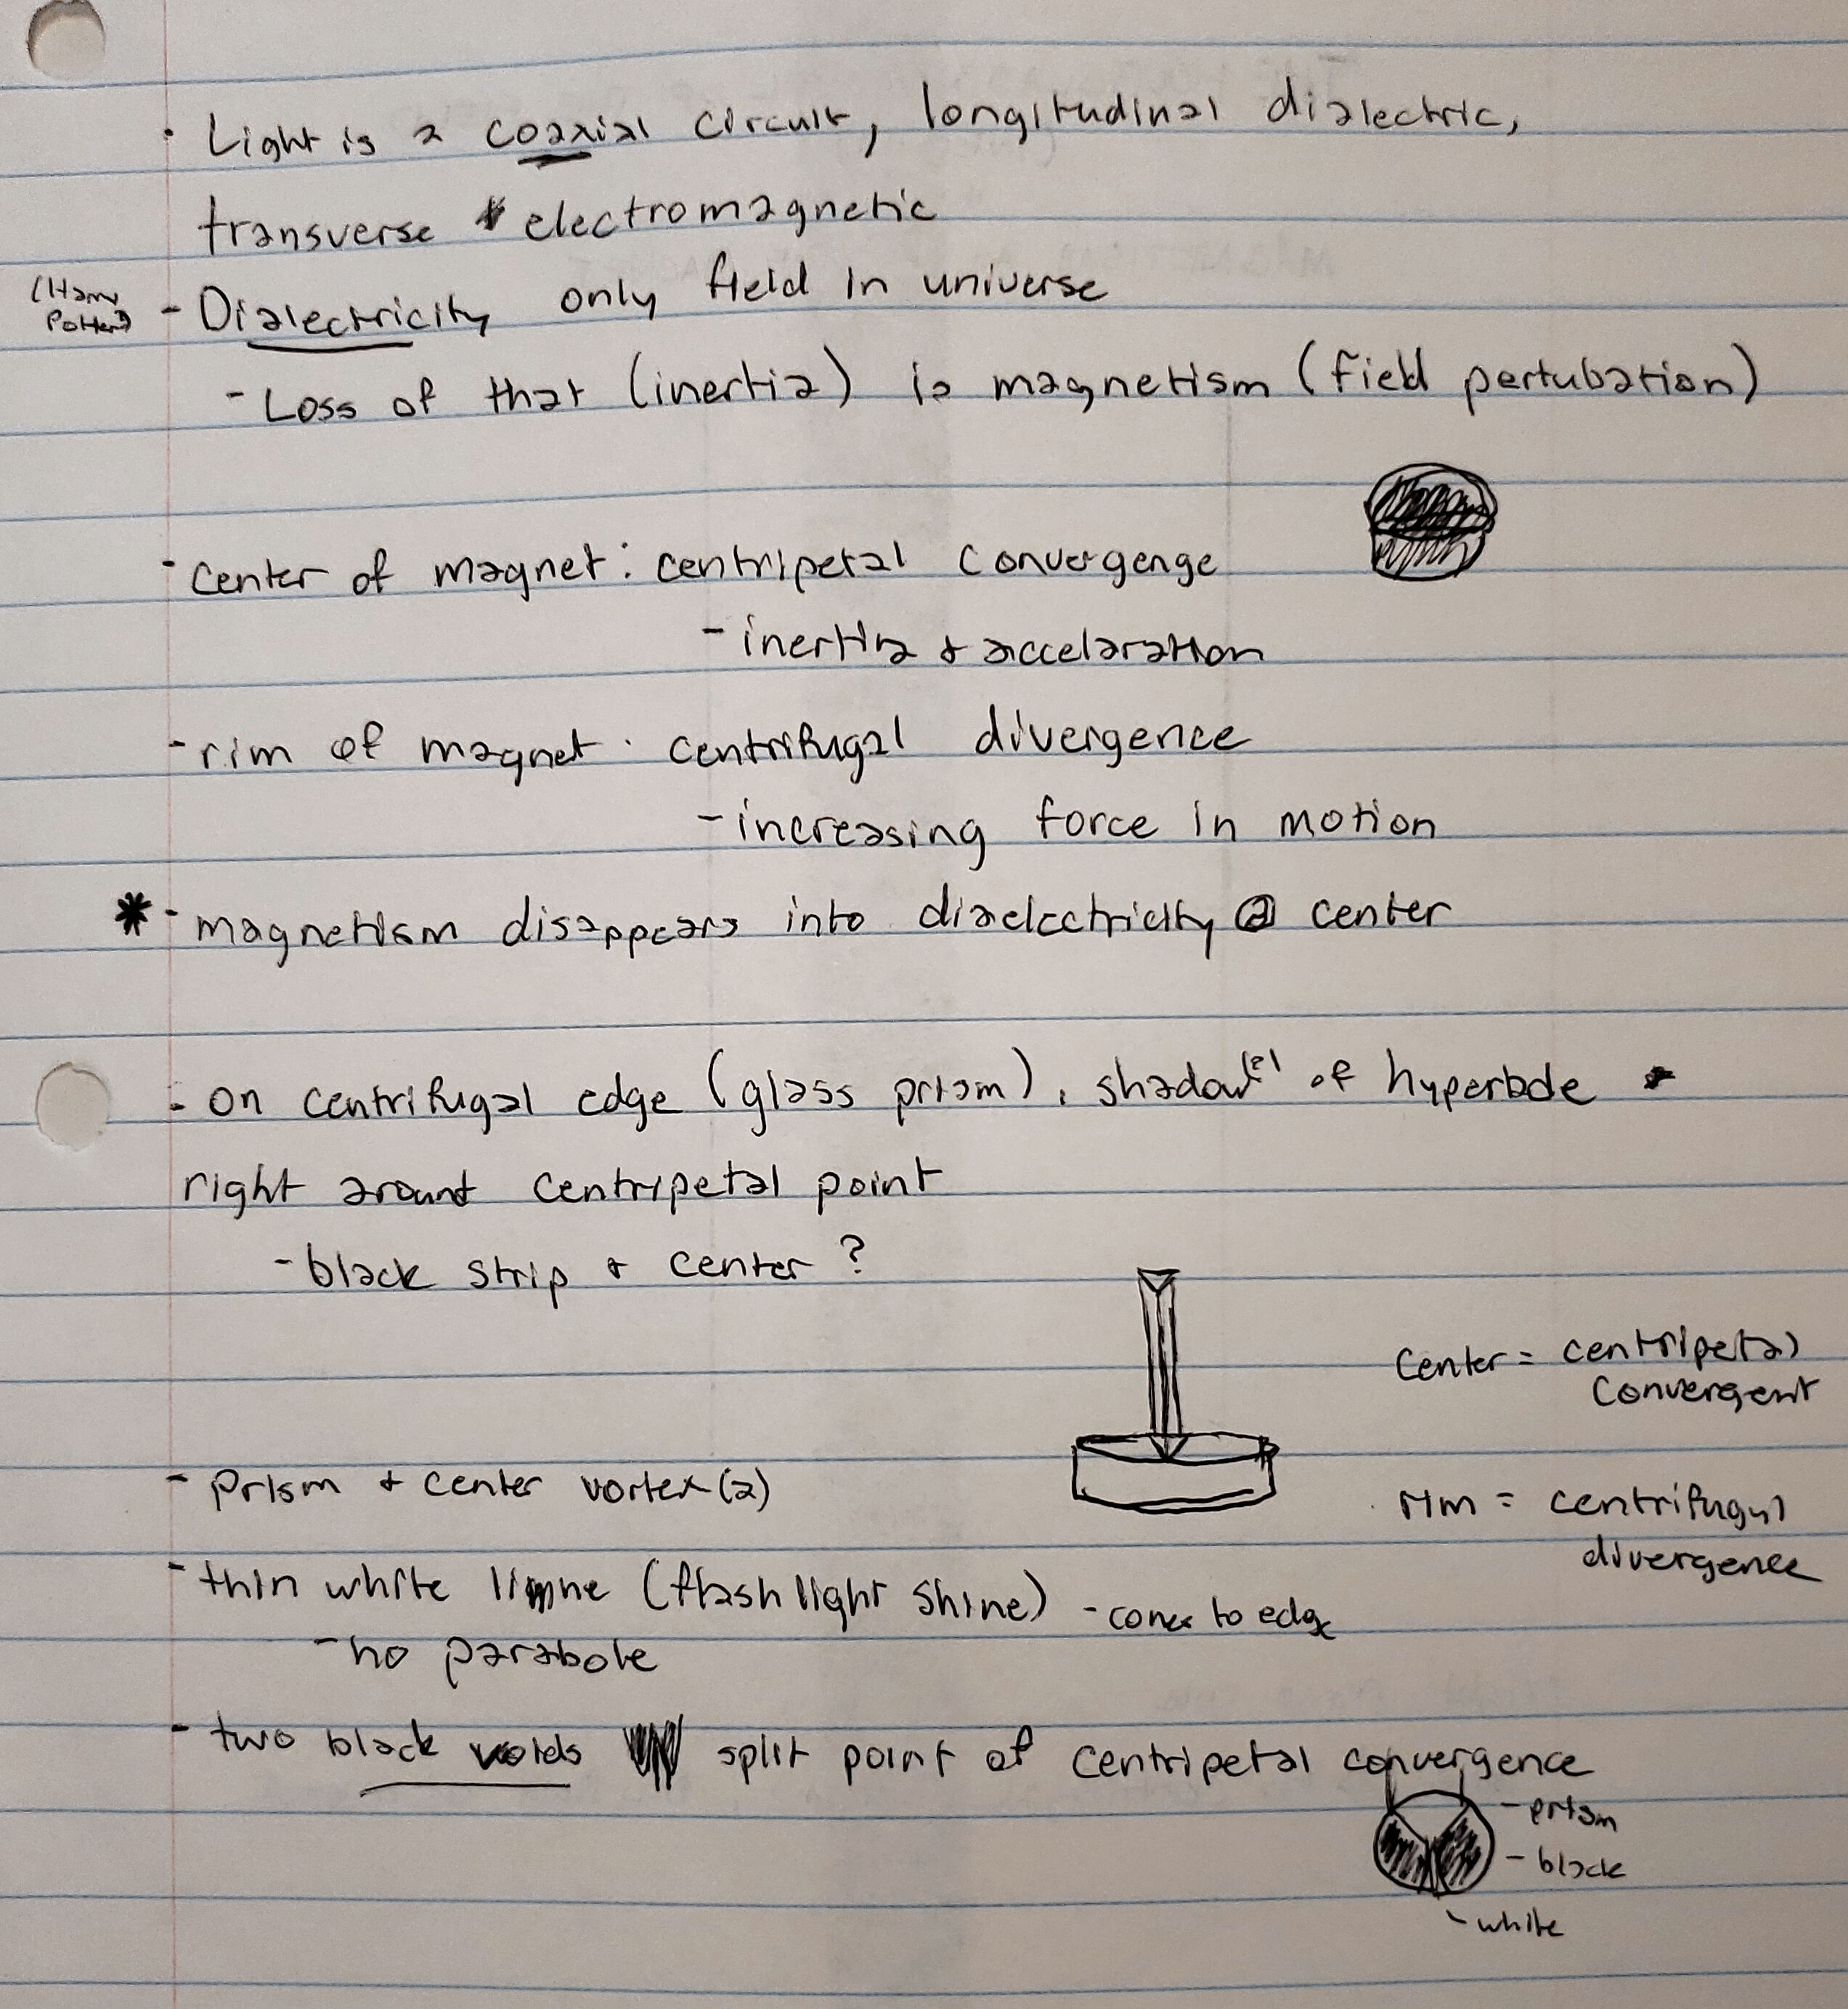 · Light is a coaxial circuit, longitudinal dialectric,
transverse electromagnetic
(Harry Potter?)
- Dialectricity only field in universe
- Loss of that (inertia) is magnetism (field pertubation)
- center of magnet: centripetal convergenge
- inertia & accelaration
- rim of magnet · centrifugal divergence
- increasing force in motion
* - magnetism disappears into diaelectricity @ center
- on centrifugal edge (glass prism), shadow of hyperbole
right around centripetal point
- black strip & center ?
center = centripetal
convergent
- prism & center vortex (2)
rim = centrifugal
divergence
- thin white line (flash light shine) - comes to edge
- no parabole
- two black voids split point of centripetal convergence
- prism
- black
- white